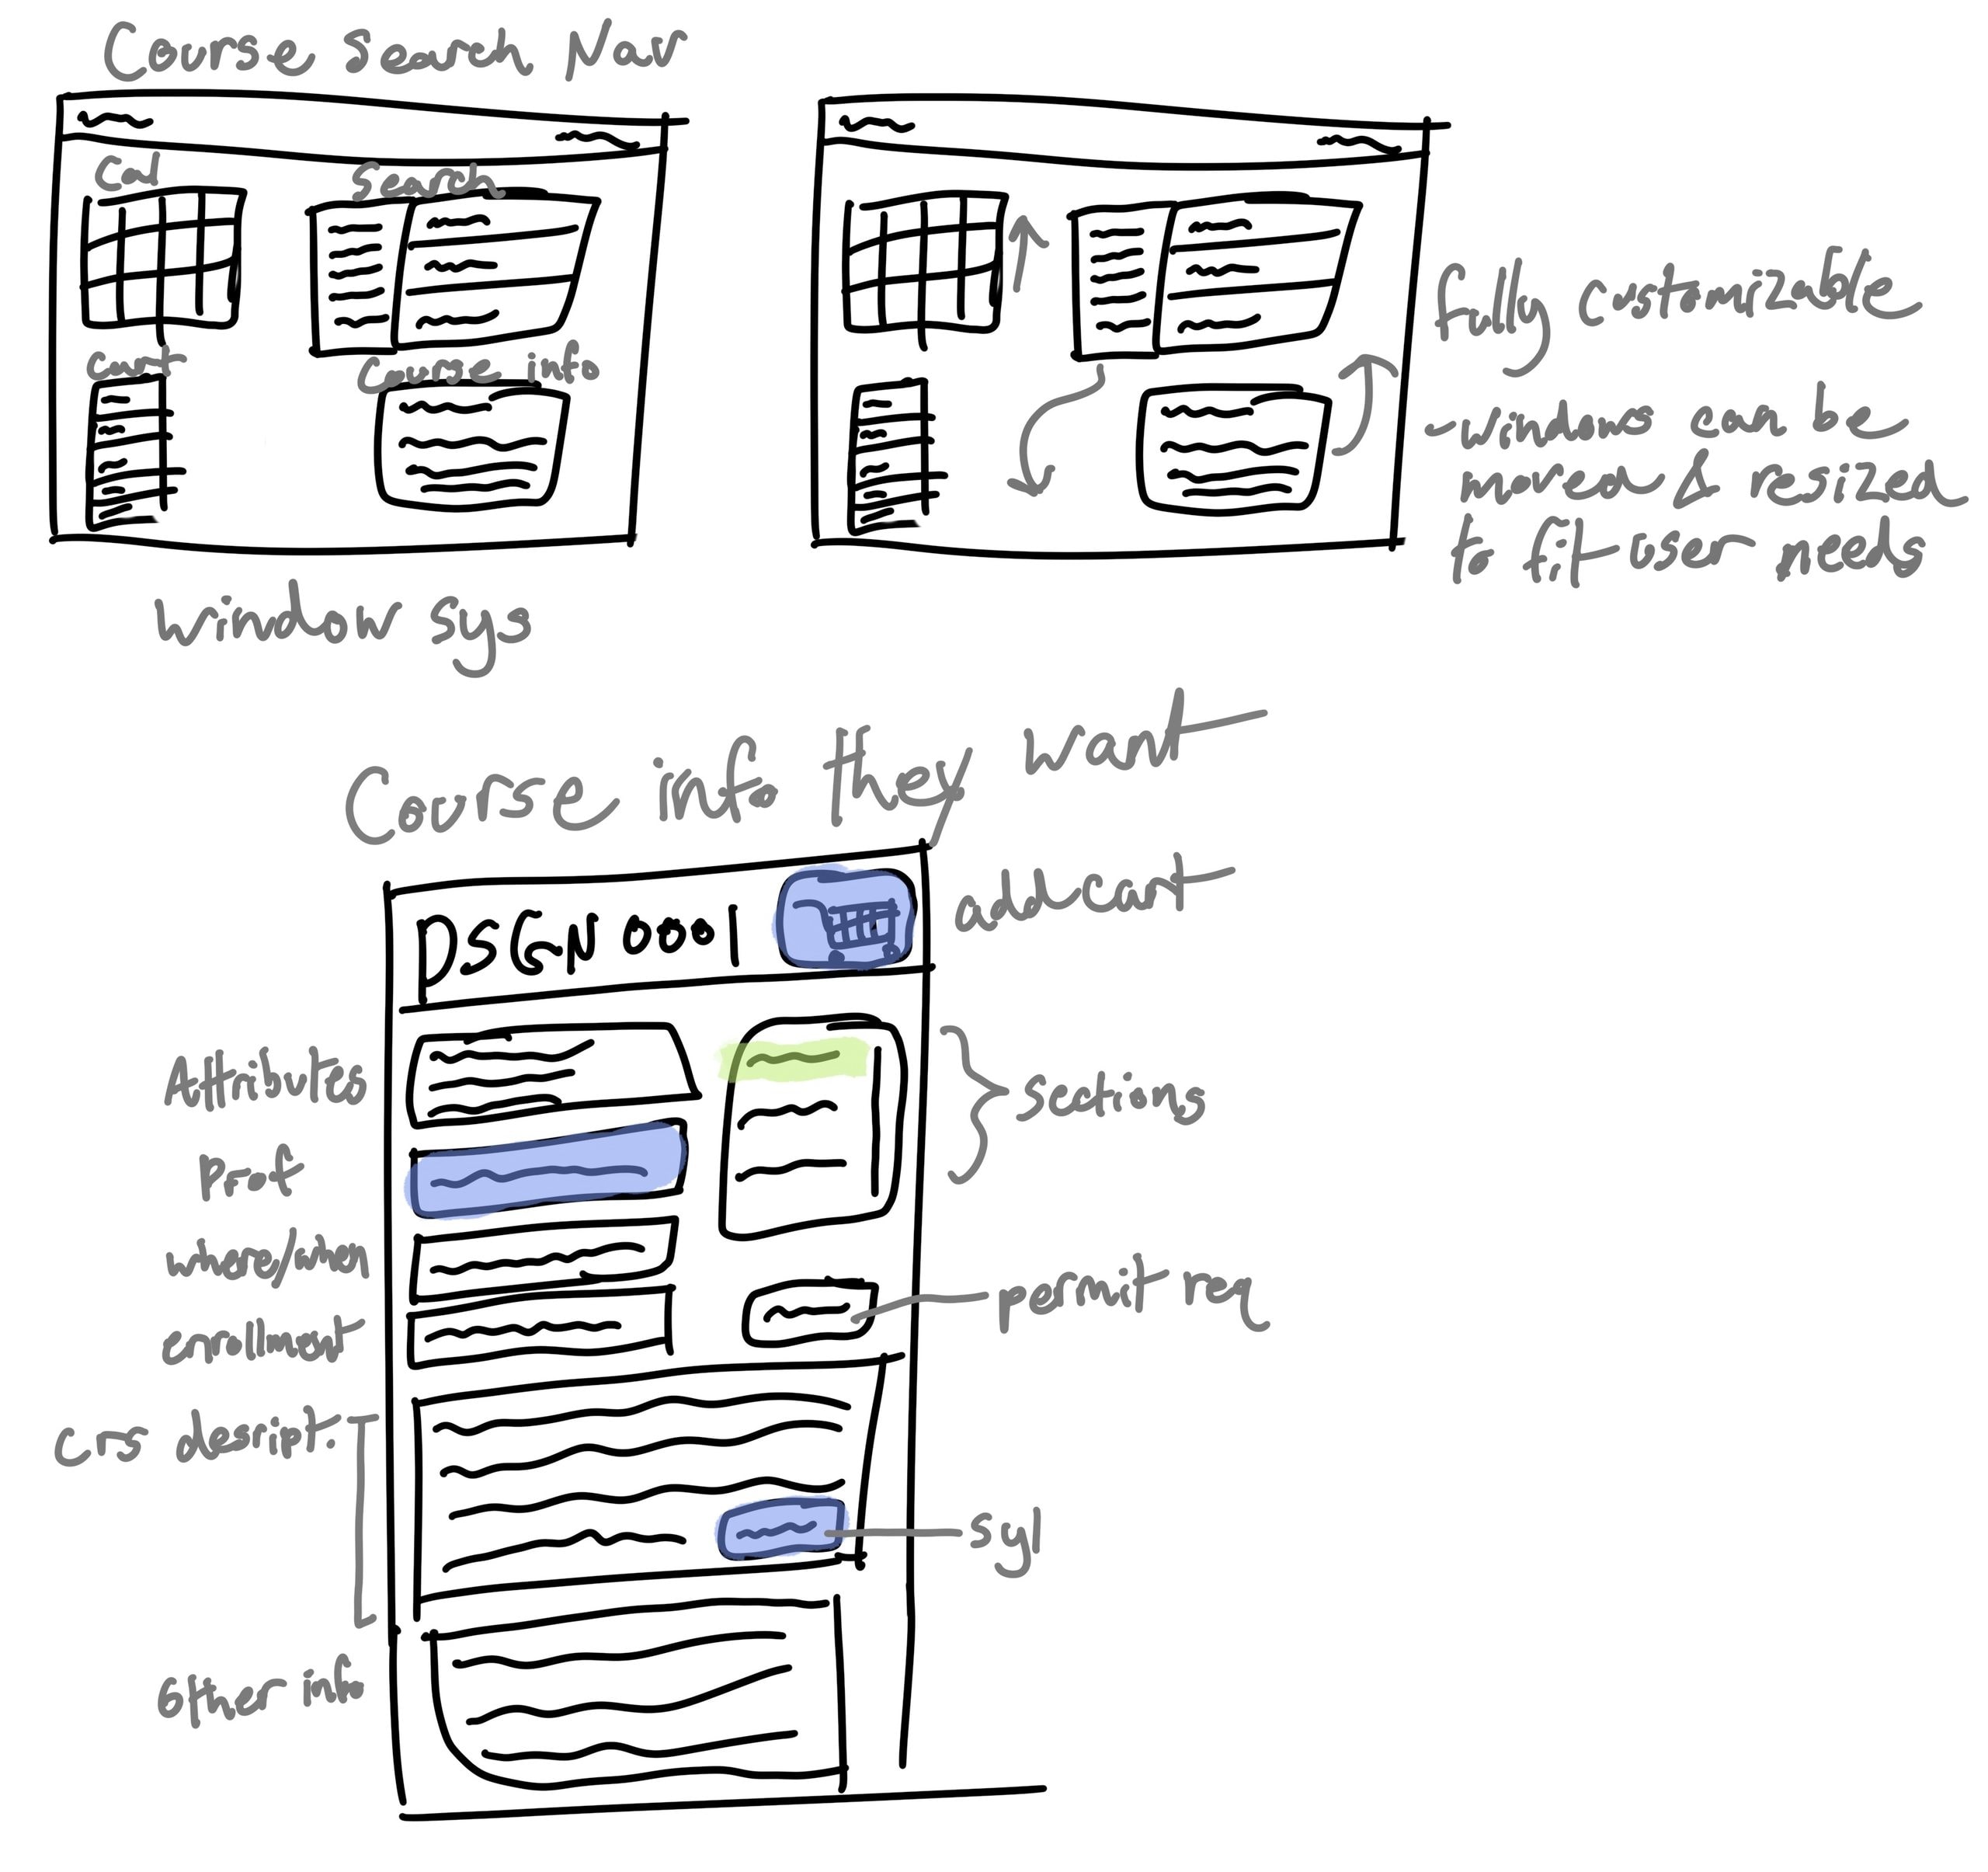 Course Search Nav
Cal
Search
Cart
Course info
Window sys
fully customizable
-windows can be
moved & resized
to fit user needs
Course info they want
DSGN 0001
add cart
Attributes
sections
Prof
where/when
permit req
enrollment
crs desript.
syl
Other info